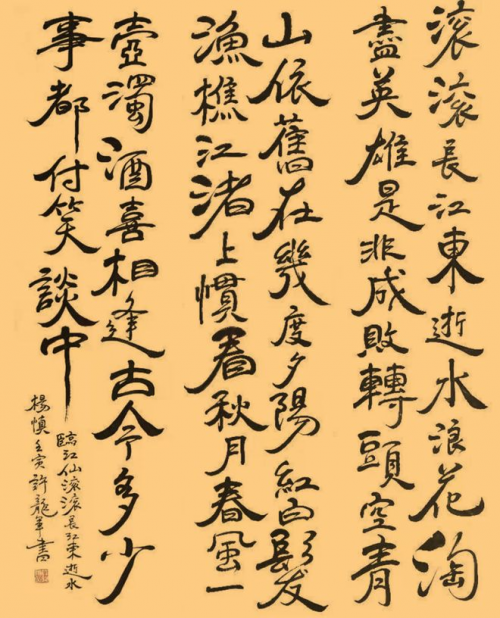 滚滚長江東逝水浪花淘
盡英雄是非成敗轉頭空青
山依舊在幾度夕陽紅白髮
漁樵江渚上慣看秋月春風一
壺濁酒喜相逢古今多少
事都付笑談中
臨江仙滚滚長江東逝水
楊慎壬寅許龍書